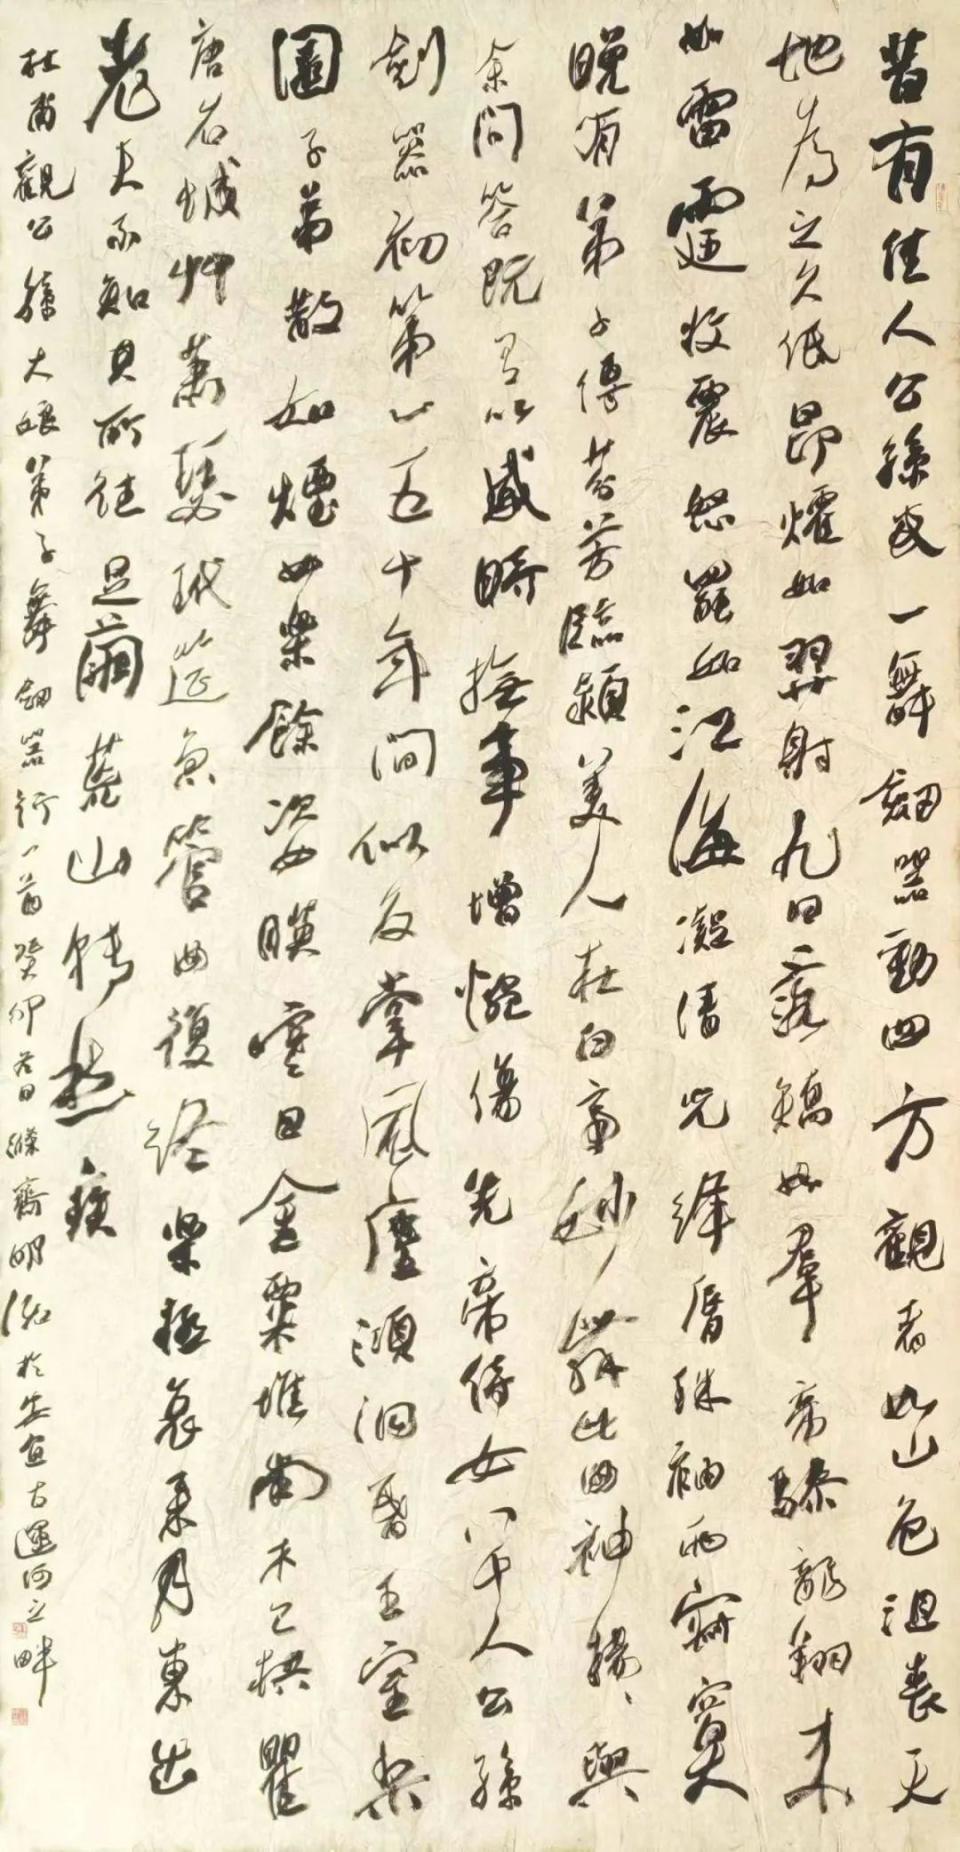 昔有佳人公孫氏一舞劒器動四方觀者如山色沮喪天
地為之久低昂㸌如羿射九日落矯如羣帝驂龍翔来
如雷霆收震怒罷如江海凝清光絳脣珠袖兩寂寞
晚有弟子傳芬芳臨潁美人在白帝妙舞此曲神揚揚與
余問答既有以感時撫事增惋傷先帝侍女八千人公孫
劍器初第一五十年間似反掌風塵澒洞昏王室梨
園子弟散如煙女樂餘姿暎寒日金粟堆南木已拱瞿
唐石城艸蕭瑟玳筵急管曲復終樂極哀来月東出
老夫不知其所往足繭荒山轉愁疾
杜甫觀公孫大娘弟子舞劒器行一首癸卯春日齋明於安宜古運河之畔